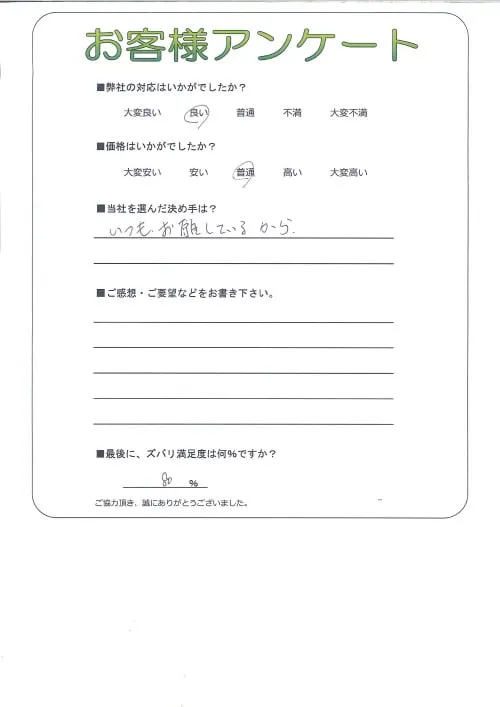 お客様アンケート
■弊社の対応はいかがでしたか？
大変良い 良い 普通 不満 大変不満
■価格はいかがでしたか？
大変安い 安い 普通 高い 大変高い
■当社を選んだ決め手は？
いつもお願しているから.
■ご感想・ご要望などをお書き下さい。
■最後に、ズバリ満足度は何%ですか？
80 %
ご協力頂き、誠にありがとうございました。